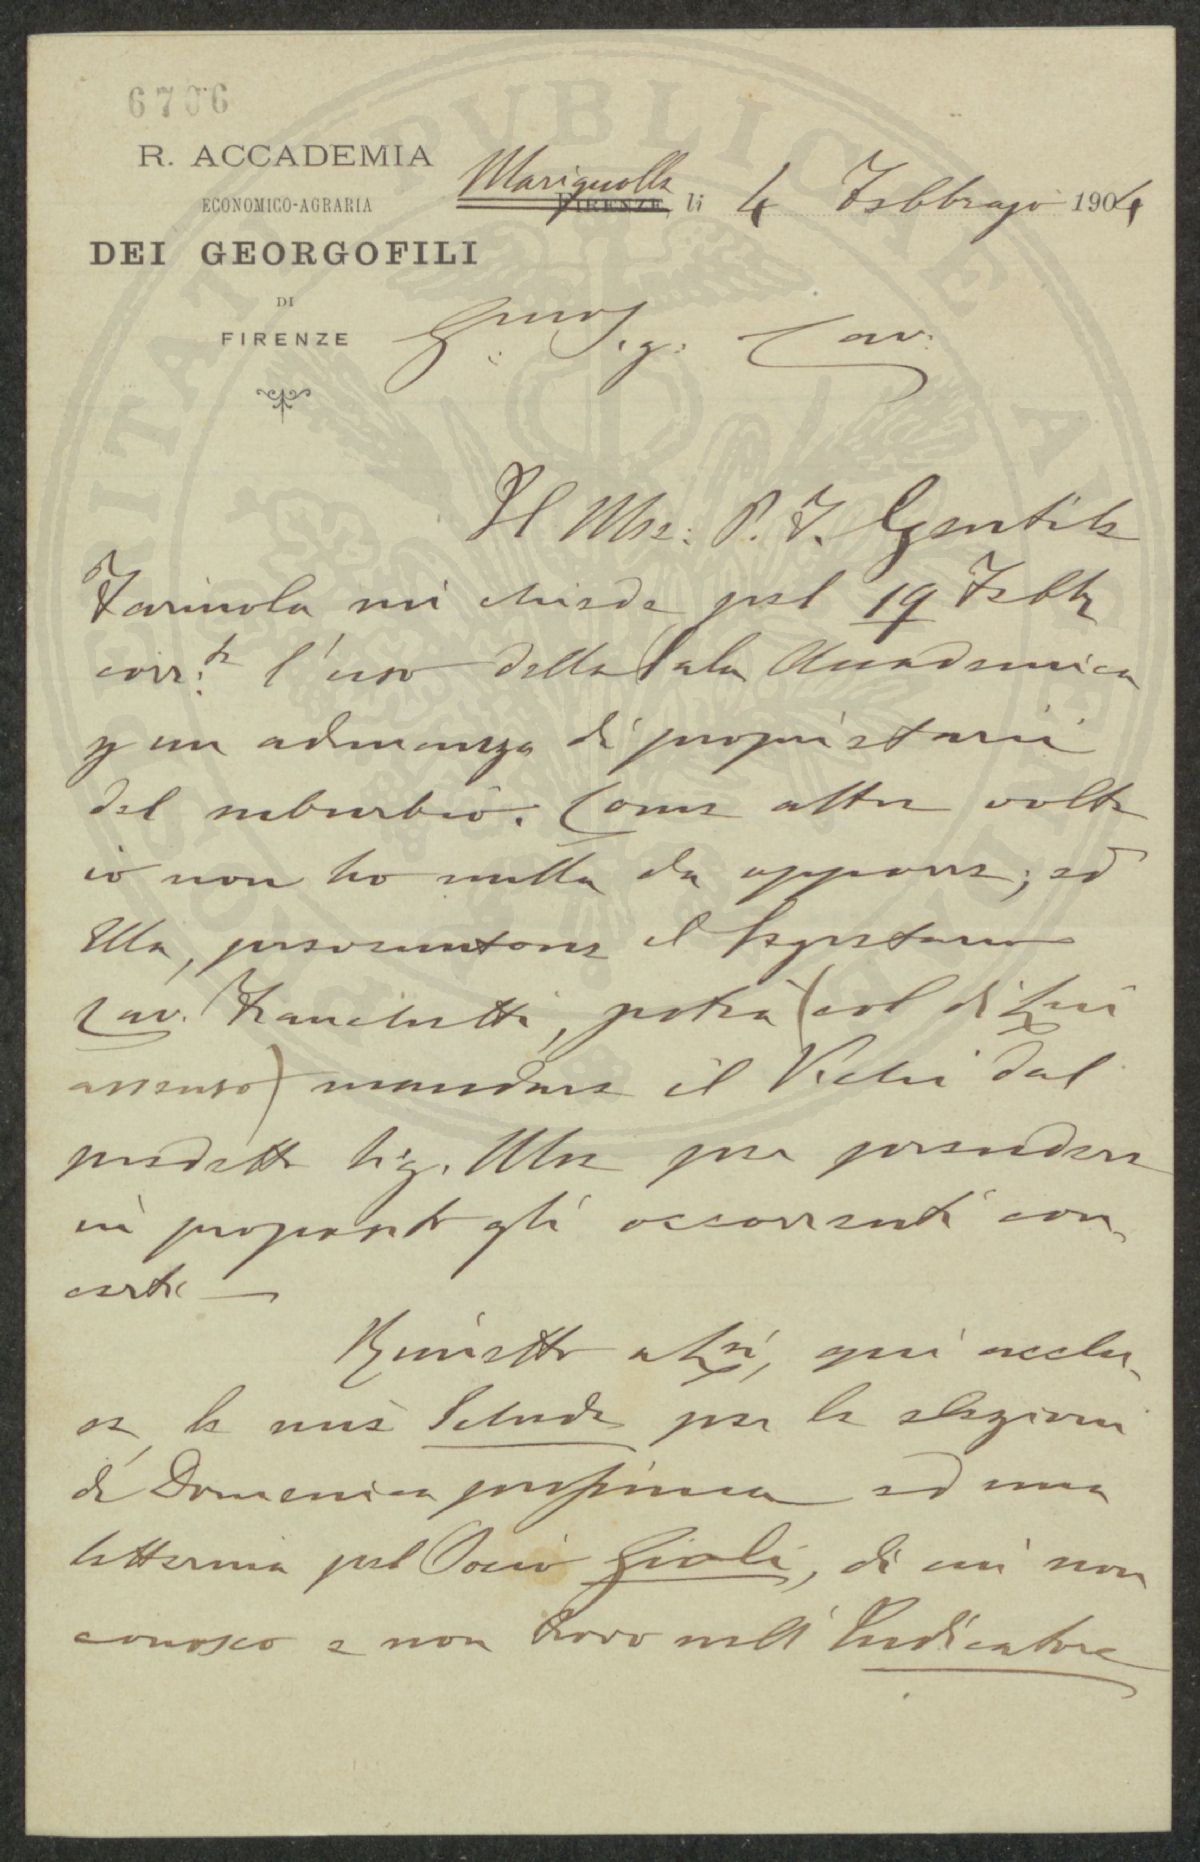 6706
R. ACCADEMIA
ECONOMICO-AGRARIA
DEI GEORGOFILI
DI
FIRENZE
Marignolle FIRENZE, li 4 Febbrajo 1904
Gmo Sig: Cav.
Il Mse: P. F. Gentile
Farinola mi chiede pel 19 Febbr
corr:te l'uso della Sala Accademica
p un adunanza di proprietarii
del suburbio. Come altre volte
io non ho nulla da opporre; ed
Ella, presenutone il Segretario
Cav. Franchetti, potrà (col di Lui
assenso) mandare il Vichi dal
predetto Sig. Mse per prendere
in proposito gli occorrenti con-
certi —
Rimetto a Lei, qui acclu-
se, le mie Schede per le elezioni
di Domenica prossima ed una
letterina pel Socio Gioli, di cui non
conosco e non trovo nell'Indicatore